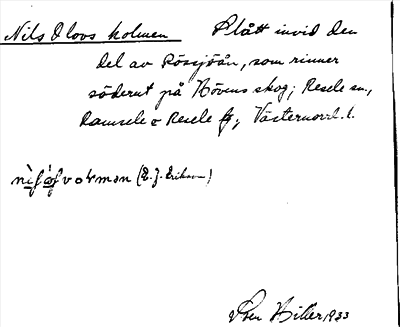 Nils Olovs holmen Slått invid den
del av Rössjöån, som rinner
söderut på Növens skog; Resele sn,
Ramsele o Resele tg; Västernorrl. l.
(E. J. Erikson)
Sven Hiller 1933